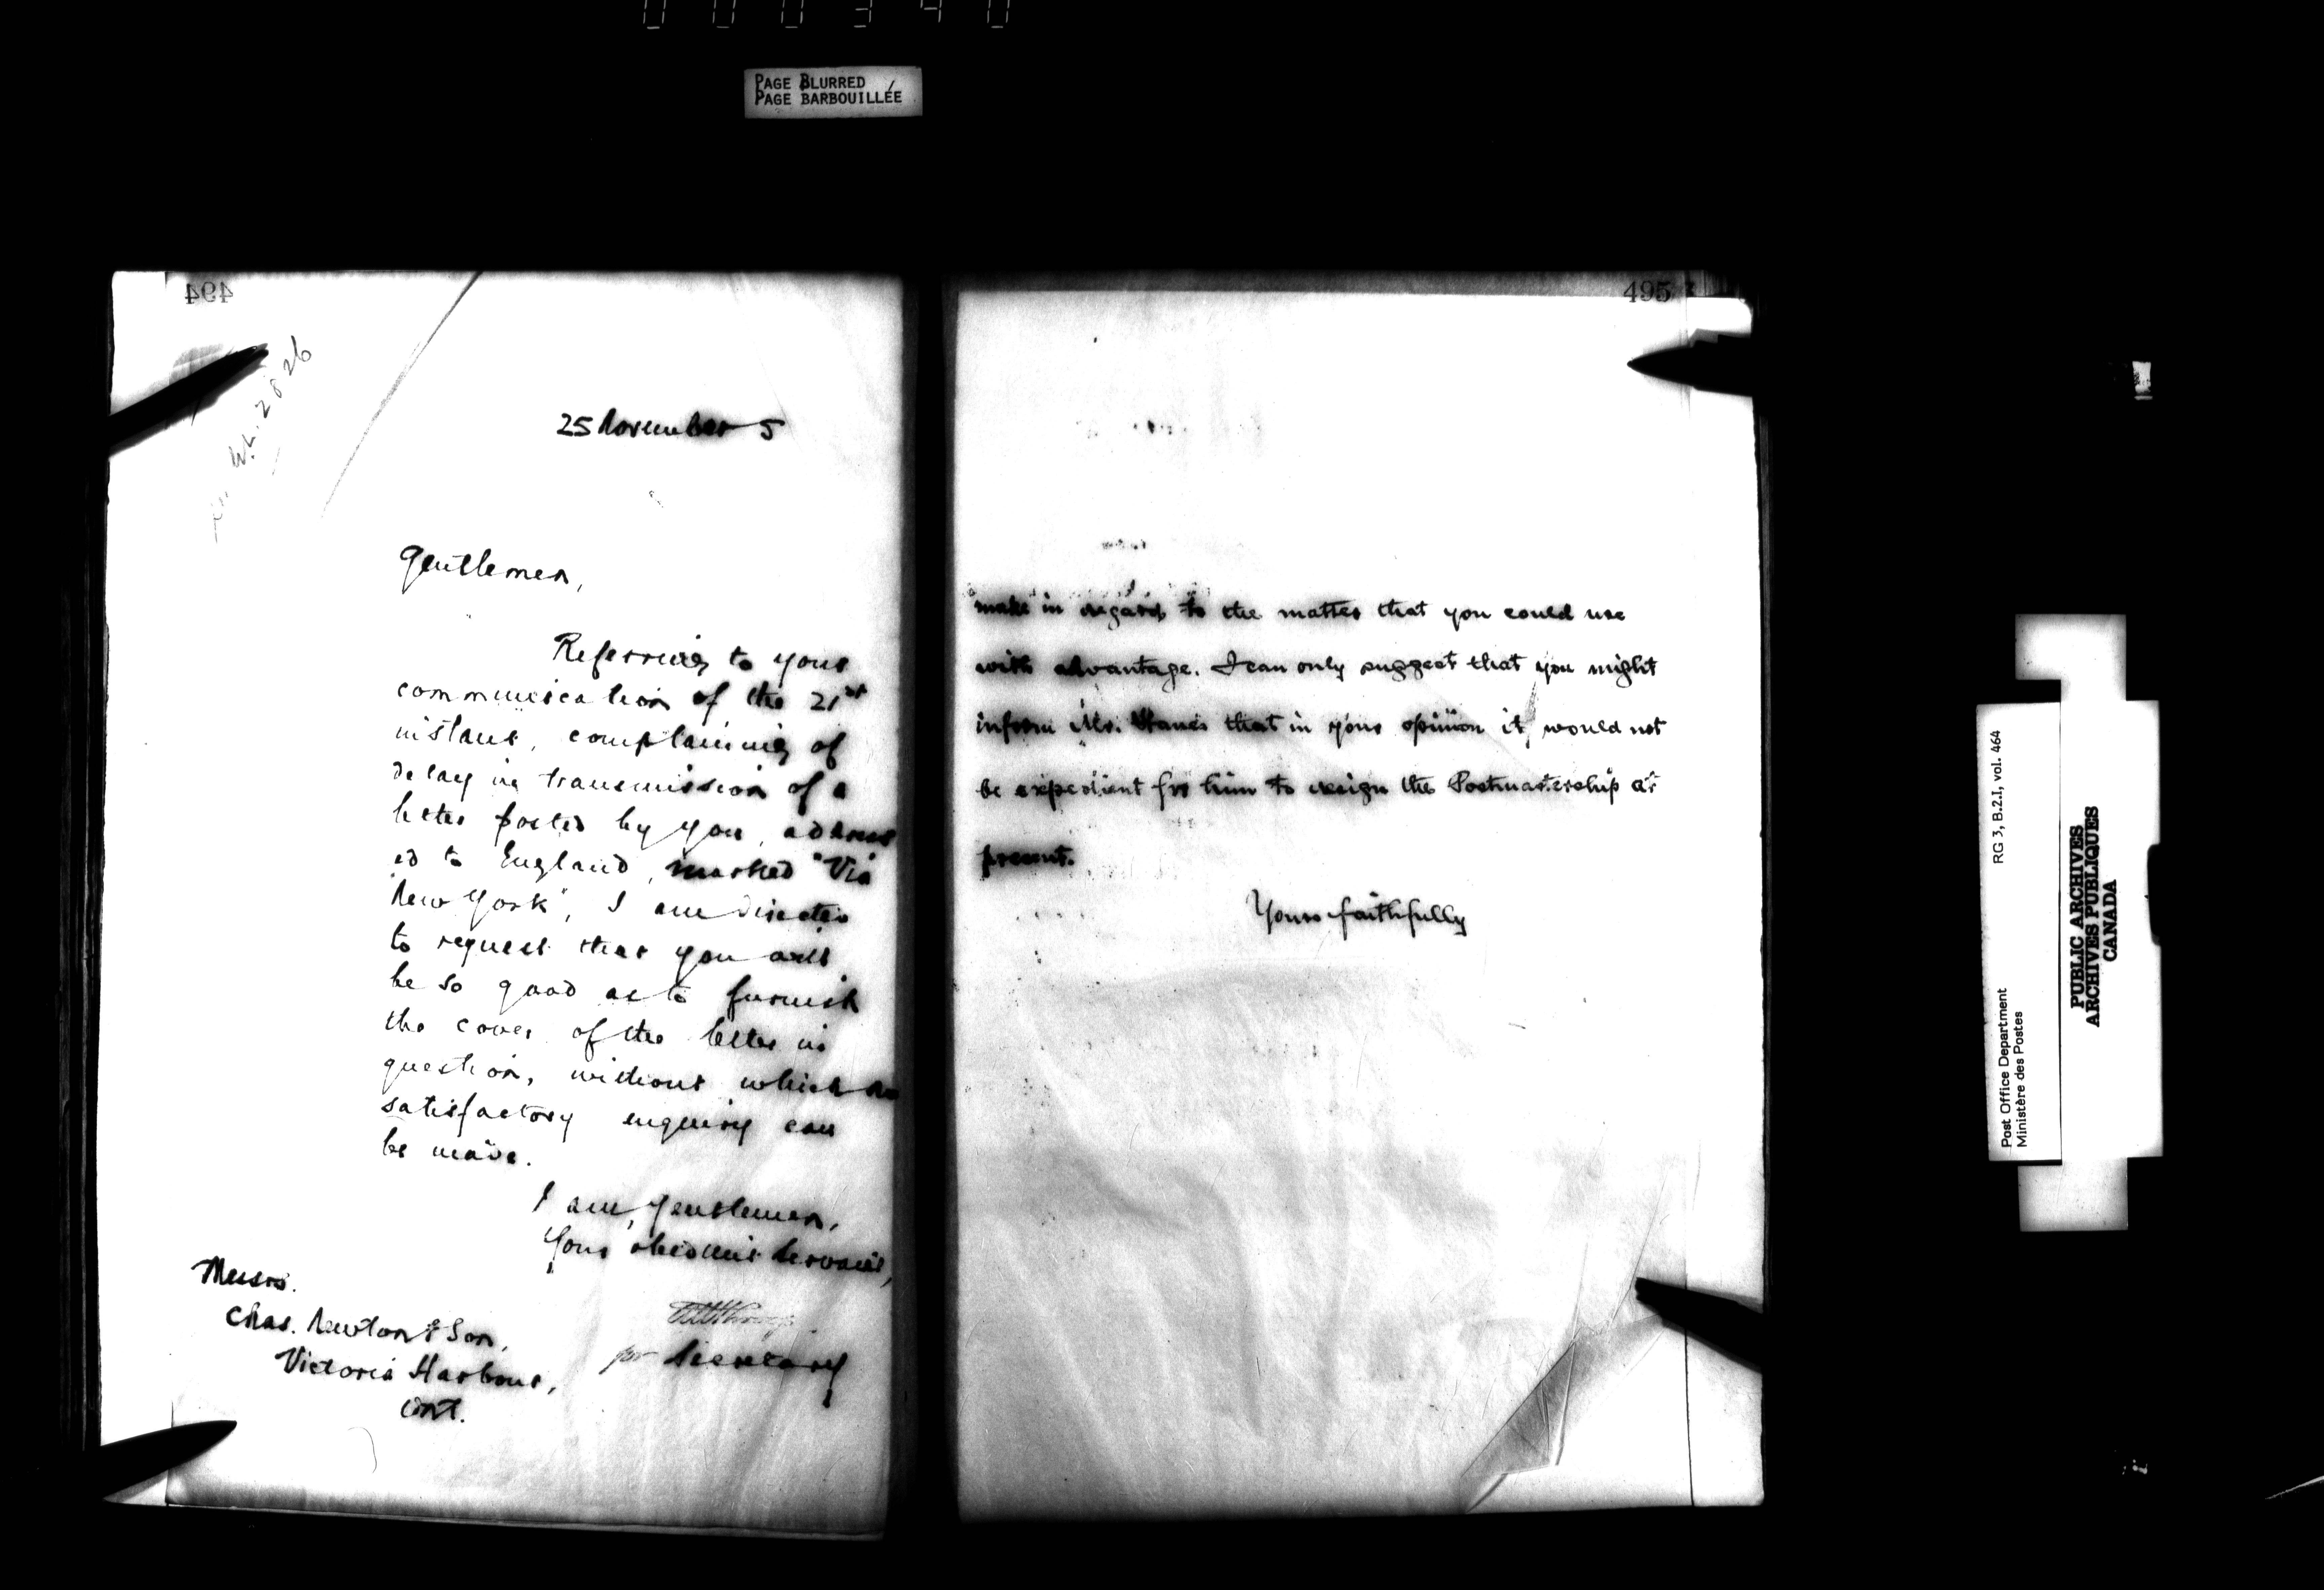 000340
PAGE BLURRED
PAGE BARBOUILLÉE
494
W.L. 2826
25 November 5
Gentlemen,
Referring to your
communication of the 21st
instant, complaining of
delay in transmission of a
letter posted by you, address
ed to England, marked "Via
New York", I am directed
to request that you will
be so good as to furnish
the cover of the letter in
question, without which no
satisfactory enquiry can
be made.
I am, Gentlemen,
Your obedient Servant,
for Secretary
Messrs.
Chas. Newton & Son,
Victoria Harbour,
Ont.
495
make in regard to the matter that you could use
with advantage. I can only suggest that you might
inform Mr. that in your opinion it would not
be expedient for him to resign the Postmastership at
present.
Yours faithfully
RG 3, B.2.I, vol. 464
Post Office Department
Ministère des Postes
PUBLIC ARCHIVES
ARCHIVES PUBLIQUES
CANADA